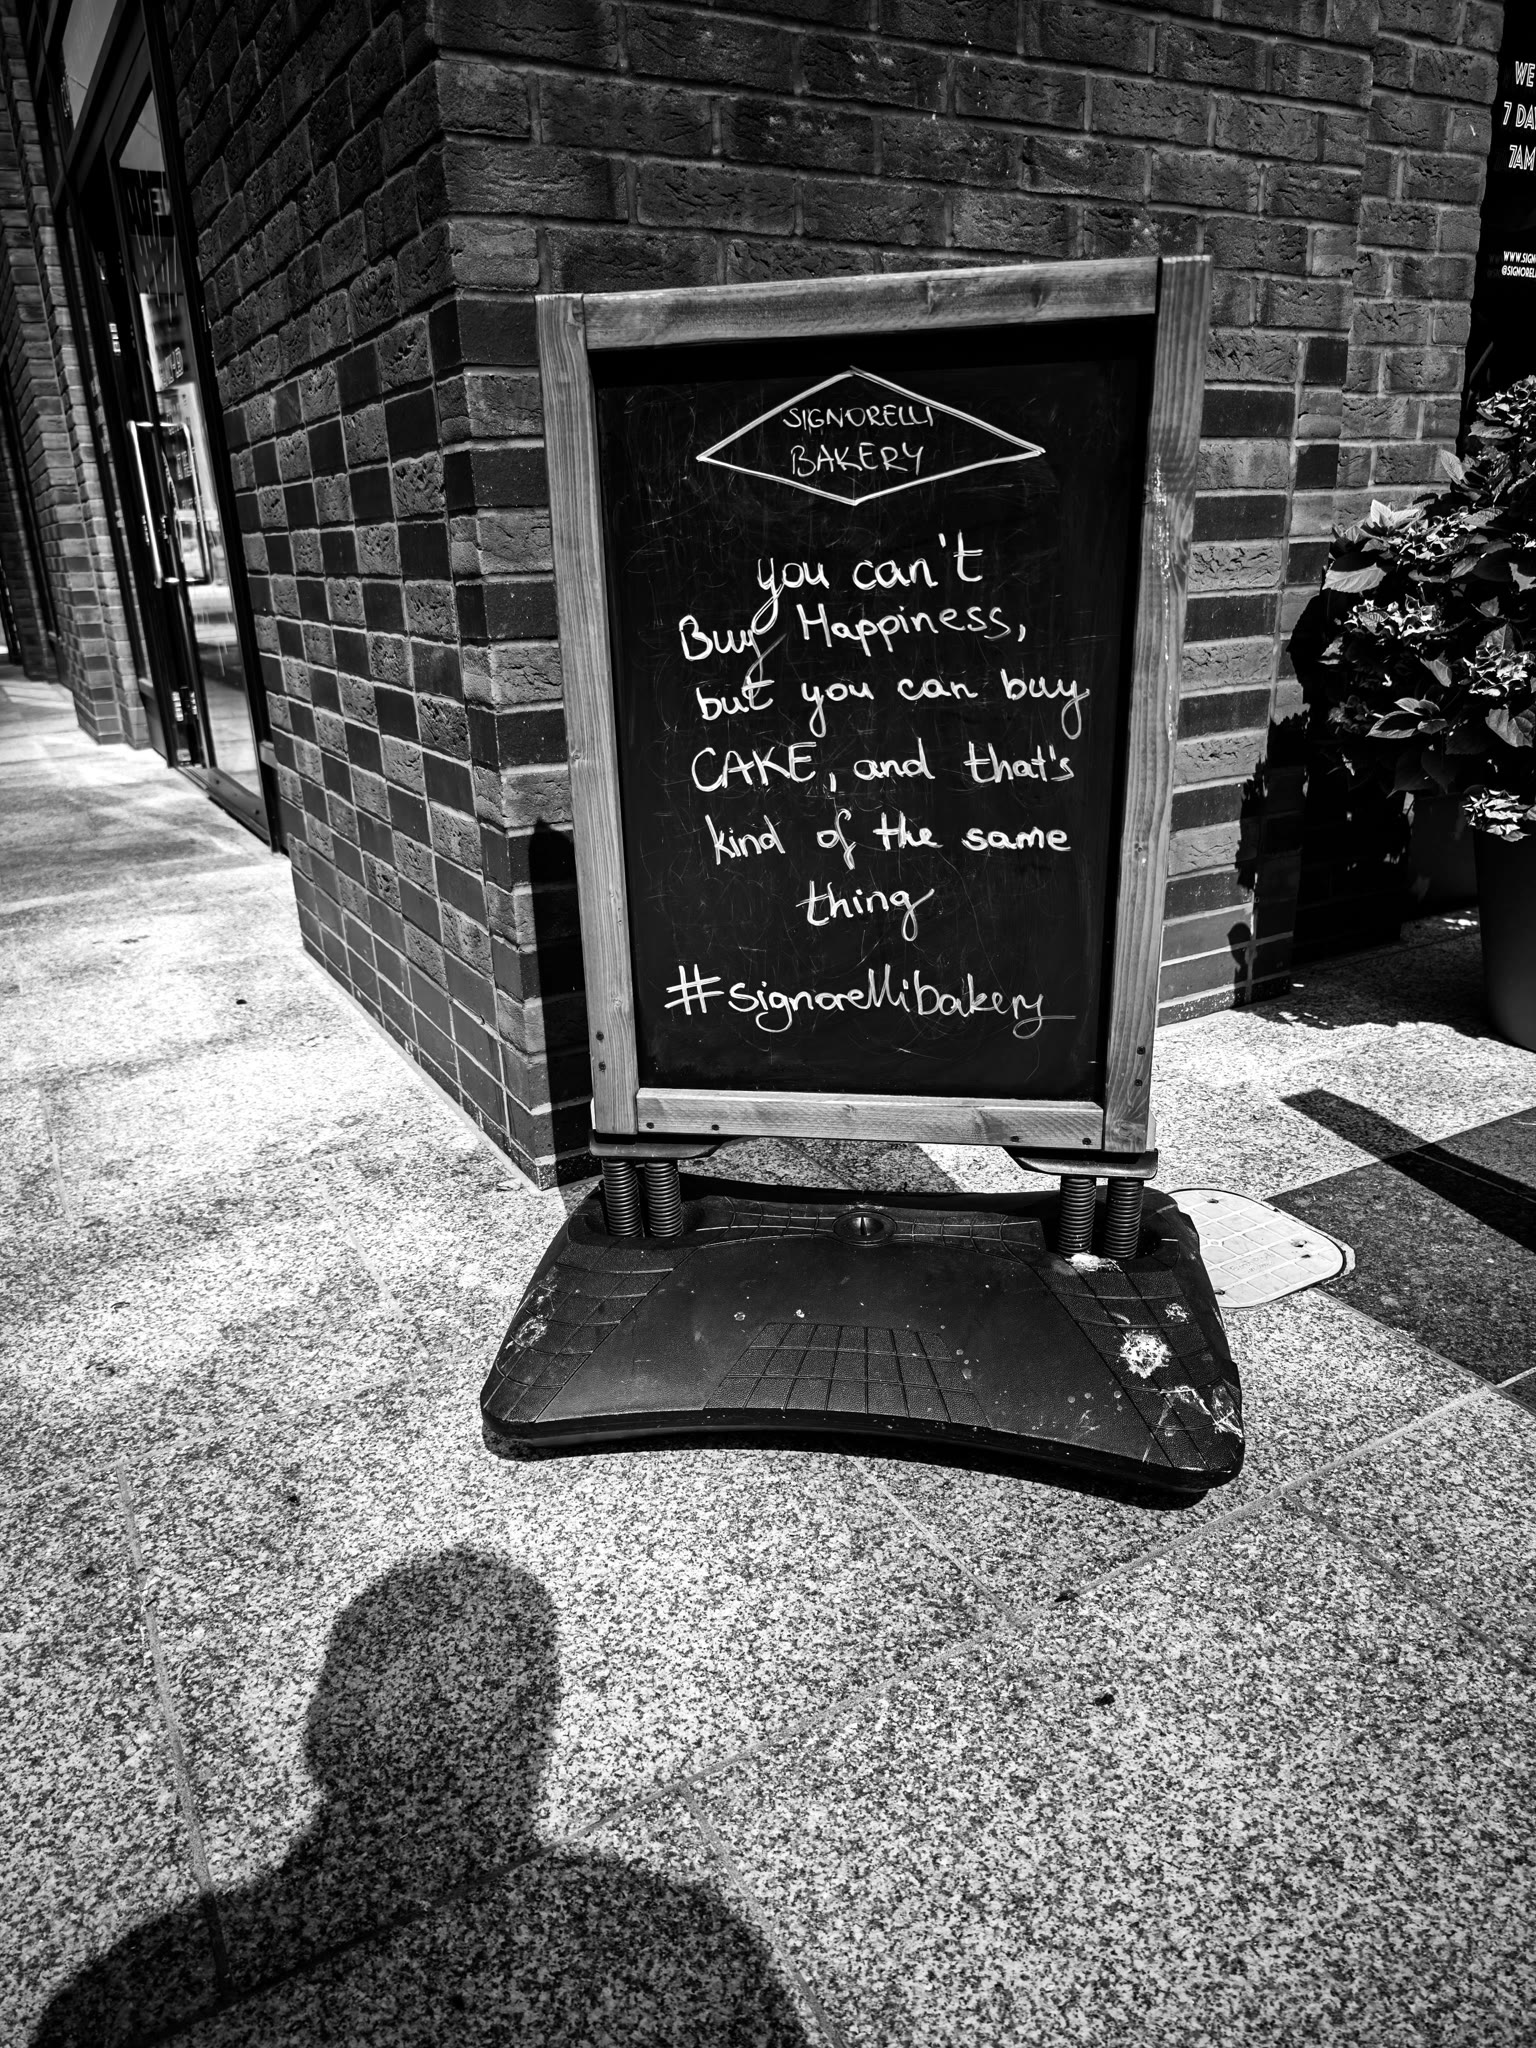 SIGNORELLI
BAKERY
you can't
Buy Happiness,
but you can buy
CAKE, and that's
kind of the same
thing
#signorellibakery
WE
7
7AM